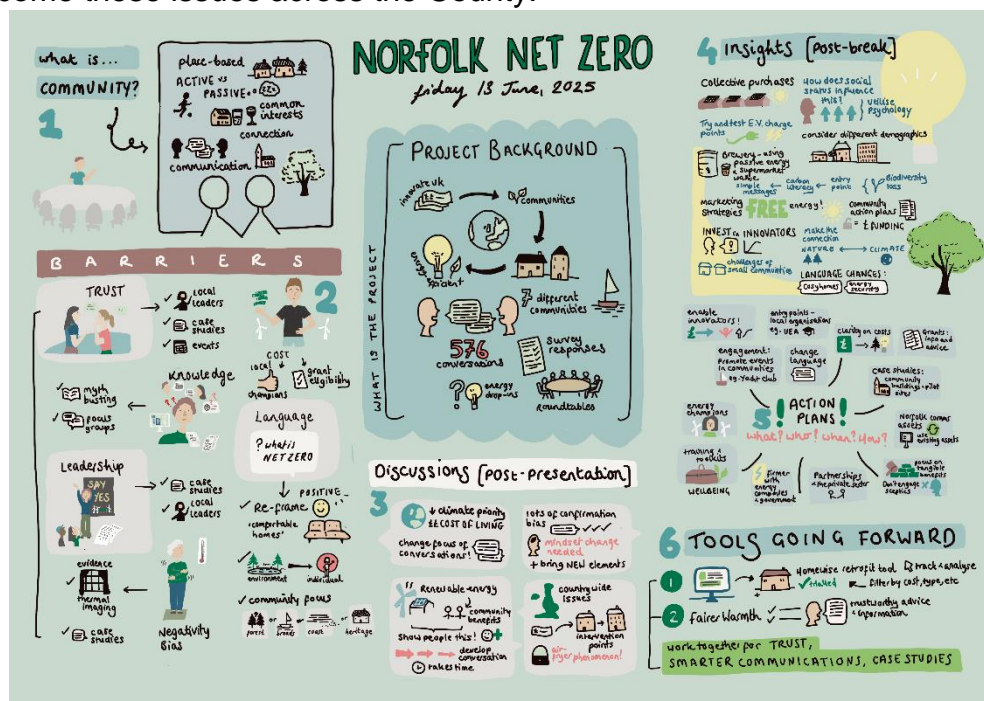 come these issues across the County.
NORFOLK NET ZERO
friday 13 June, 2025
what is...
COMMUNITY?
1
place-based
ACTIVE vs
PASSIVE
common
interests
connection
communication
BARRIERS
2
TRUST
✓ local
leaders
✓ case
studies
✓ events
Knowledge
✓ myth
busting
✓ focus
groups
Leadership
SAY
YES
✓ case
studies
✓ local
leaders
evidence
✓ thermal
imaging
✓ case
studies
Negativity
Bias
COST
local
champions
grant
eligibility
Language
? what is
NET ZERO
POSITIVE
✓ Re-frame
'comfortable
homes'
✓ environment
individual
✓ community focus
forest
or
broads
or
coast
or
heritage
PROJECT BACKGROUND
WHAT IS THE PROJECT
innovate UK
communities
energy
7 different
communities
576
conversations
survey
responses
? energy
drop-ins
roundtables
Discussions [post-presentation]
3
↓ climate priority
££ COST OF LIVING
change focus of
conversations!
lots of confirmation
bias
mindset change
needed
+ bring NEW elements
Renewable energy
community
benefits
show people this!
develop
conversation
takes time
countywide
issues
intervention
points
air-
fryer phenomenon!
4 Insights [post-break]
Collective purchases
How does social
status influence
this?
utilise
Psychology
Try and test E.V. charge
points
consider different demographics
Brewery - using
passive energy
& supermarket
waste
simple
messages
carbon
literacy
entry
point
Biodiversity
loss
marketing
strategies
FREE energy!
community
action plans
= £ FUNDING
INVEST in INNOVATORS
make the
connection
NATURE
CLIMATE
challenges of
small communities
LANGUAGE CHANGES:
cosy homes
energy
security
enable
innovators!
entry points -
local organisations
eg. UEA
clarity on costs
Grants:
info and
advice
engagement:
Promote events
in communities
eg. Yacht club
change
language
CASE studies:
community
buildings + pilot
sites
energy
champions
5
! ACTION
PLANS !
What? Who? When? How?
Norfolk comms
assets
use
existing assets
training &
toolkits
WELLBEING
firmer
with
energy
companies
& government
Partnerships
+ the private sector
focus on
tangible
benefits
Don't engage
sceptics
6 TOOLS GOING FORWARD
1
homewise retrofit tool
track + analyse
✓ trialled
filter by cost, type, etc
2
Fairer Warmth
trustworthy advice
+ information
work together for TRUST,
SMARTER COMMUNICATIONS, CASE STUDIES